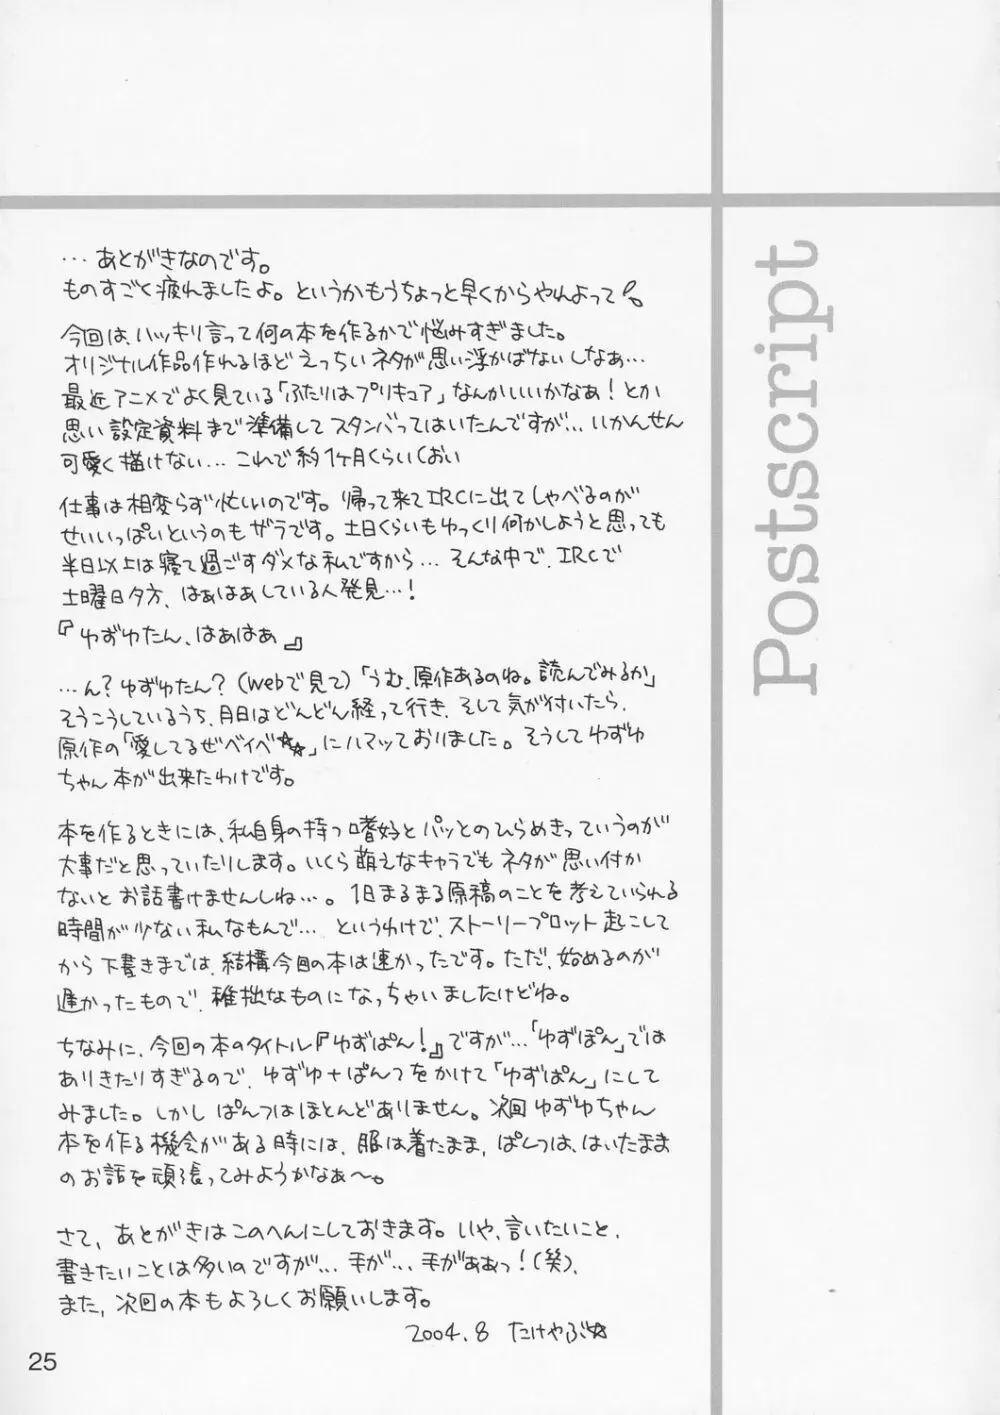 …あとがきなのです。
ものすごく疲れましたよ。というかもうちょっと早くからやれよって
今回は、ハッキリ言って何の本を作るかで悩みすぎました。
オリジナル作品作れるほどえっちいネタが思い浮かばないしなぁ…
最近アニメでよく見ている「ふたりはプリキュア」なんかいいかなぁ!とか
思い設定資料まで準備してスタンバってはいたんですが…いかんせん
可愛く描けない…これで約1ヶ月くらいしおい
仕事は相変らず忙しいのです。帰って来てIRCに出てしゃべるのが
せいいっぱいというのもザラです。土日くらいもゆっくり何かしようと思っても
半日以上は寝て過ごすダメな私ですから…そんな中で、IRCで
土曜日夕方、はぁはぁしている人発見…!
『ゆずゆたん、はぁはぁ』
…ん?ゆずゆたん?(webで見て)「うむ、原作あるのね。読んでみるか」
そうこうしているうち、月日はどんどん経って行き、そして気が付いたら、
原作の「愛してるぜベイベ☆☆」にハマッておりました。そうしてゆずゆ
ちゃん本が出来たわけです。
本を作るときには、私自身の持つ嗜好とパッとのひらめきっていうのが
大事だと思っていたりします。いくら萌えなキャラでもネタが思い付か
ないとお話書けませんしね…。1日まるまる原稿のことを考えていられる
時間が少ない私なもんで…というわけで、ストーリープロット起こして
から下書きまでは、結構今回の本は速かったです。ただ、始めるのが
遅かったもので、稚拙なものになっちゃいましたけどね。
ちなみに、今回の本のタイトル『ゆずぱん!』ですが…「ゆずぽん」では
ありきたりすぎるので、ゆずゆ+ぱんつをかけて「ゆずぱん」にして
みました。しかしぱんつはほとんどありません。次回ゆずゆちゃん
本を作る機会がある時には、服は着たまま、ぱんつは、はいたまま
のお話を頑張ってみようかなぁ〜。
さて、あとがきはこのへんにしておきます。いや、言いたいこと、
書きたいことは多いのですが…手が…手がああっ!(笑)、
また、次回の本もよろしくお願いします。
2004.8 たけやぶ☆
Postscript
25